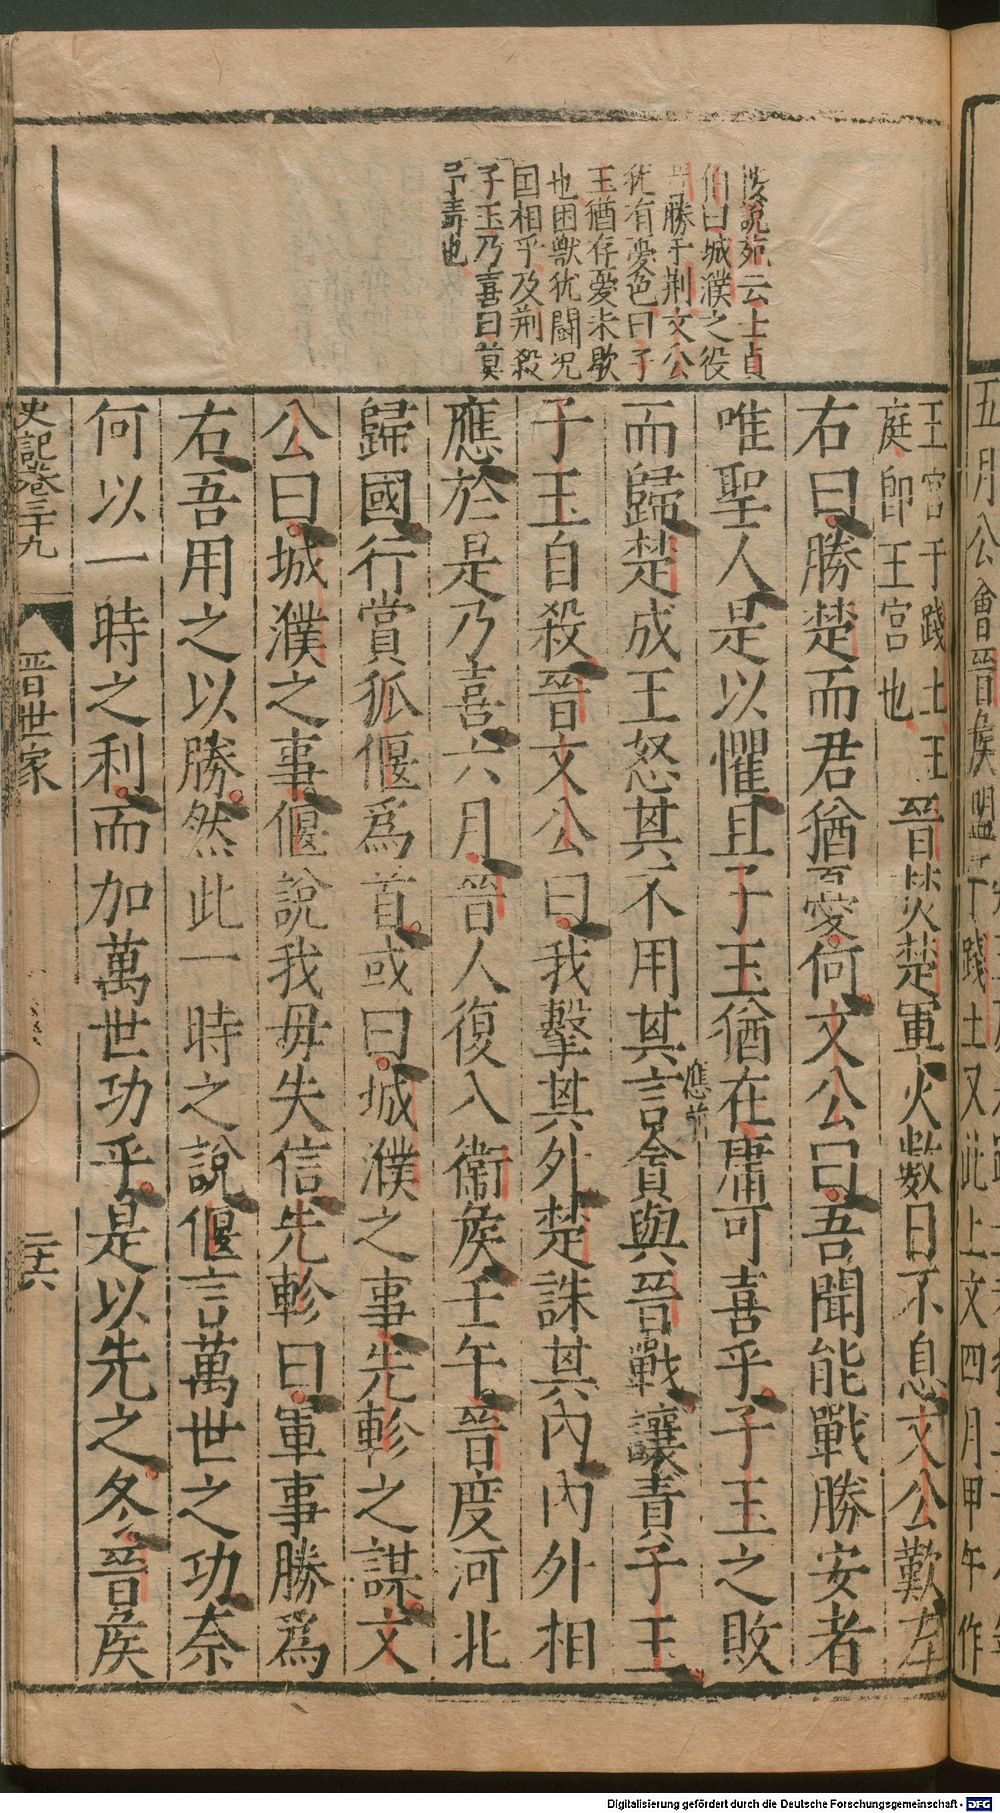 按說苑云士貞
伯曰城濮之役
晉勝于荆文公
犹有憂色曰子
玉猶存憂未歇
也困獸犹鬪况
国相乎及荆殺
子玉乃喜曰莫
予毒也
王宮于踐土王
庭卽王宮也
晉焚楚軍火數日不息文公歎左
右曰勝楚而君猶憂何文公曰吾聞能戰勝安者
唯聖人是以懼且子玉猶在庸可喜乎子玉之敗
應前
而歸楚成王怒其不用其言貪與晉戰讓責子玉
子玉自殺晉文公曰我擊其外楚誅其內內外相
應於是乃喜六月晉人復入衞矦壬午晉度河北
歸國行賞狐偃爲首或曰城濮之事先軫之謀文
公曰城濮之事偃說我毋失信先軫曰軍事勝爲
右吾用之以勝然此一時之說偃言萬世之功奈
何以一時之利而加萬世功乎是以先之冬晉矦
史記卷三十九
晉世家
二十六
五月公會晉矦盟于踐土又此上文四月甲午作
Digitalisierung gefördert durch die Deutsche Forschungsgemeinschaft - DFG